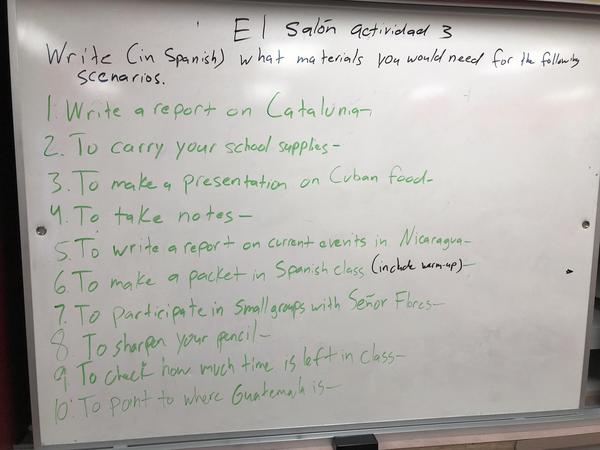 El salón actividad 3
Write (in Spanish) what materials you would need for the following
scenarios.
1. Write a report on Catalunia-
2. To carry your school supplies-
3. To make a presentation on Cuban food-
4. To take notes-
5. To write a report on current events in Nicaragua-
6. To make a packet in Spanish class (include warm-up)-
7. To participate in small groups with Señor Flores-
8. To sharpen your pencil-
9. To check how much time is left in class-
10. To point to where Guatemala is-